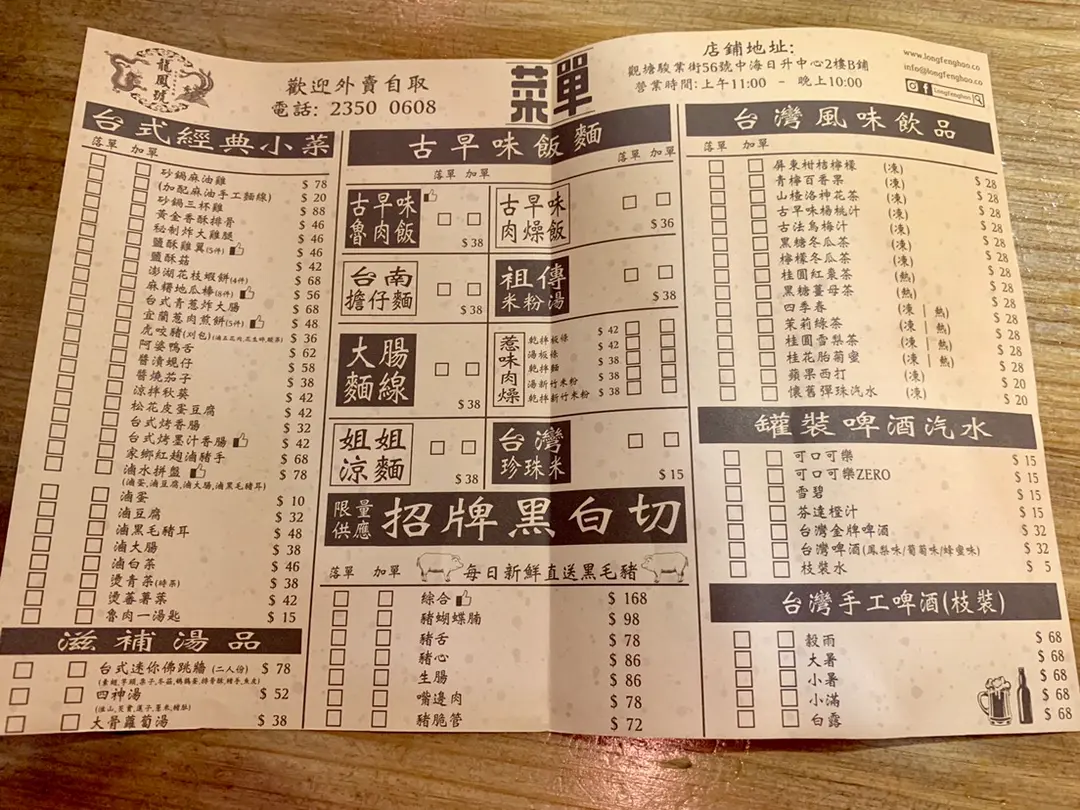 龍鳳號
歡迎外賣自取
電話: 2350 0608
菜單
店鋪地址:
觀塘駿業街56號中海日升中心2樓B鋪
營業時間:上午11:00 - 晚上10:00
www.longfenghao.co
info@longfenghao.co
Longfenghao
台式經典小菜
落單 加單
砂鍋麻油雞 $ 78
(加配麻油手工麵線) $ 20
砂鍋三杯雞 $ 88
黃金香酥排骨 $ 46
秘制炸大雞腿 $ 46
鹽酥雞翼(5件) $ 46
鹽酥菇 $ 42
澎湖花枝蝦餅(4件) $ 68
麻糬地瓜棒(8件) $ 56
台式青蔥炸大腸 $ 68
宜蘭蔥肉煎餅(5件) $ 48
虎咬豬(刈包)(滷五花肉,花生碎,酸菜) $ 36
阿婆鴨舌 $ 62
醬漬蜆仔 $ 58
醬燒茄子 $ 38
涼拌秋葵 $ 42
松花皮蛋豆腐 $ 42
台式烤香腸 $ 32
台式烤墨汁香腸 $ 42
家鄉紅麹滷豬手 $ 68
滷水拼盤 $ 78
(滷蛋,滷豆腐,滷大腸,滷黑毛豬耳)
滷蛋 $ 10
滷豆腐 $ 32
滷黑毛豬耳 $ 48
滷大腸 $ 38
滷白菜 $ 46
燙青菜(時菜) $ 38
燙蕃薯菜 $ 42
魯肉一湯匙 $ 15
滋補湯品
台式迷你佛跳牆 (二人份) $ 78
四神湯 $ 52
大骨蘿蔔湯 $ 38
古早味飯麵
落單 加單
落單 加單
古早味
魯肉飯
$ 38
古早味
肉燥飯
$ 36
台南
擔仔麵
$ 38
祖傳
米粉湯
$ 38
大腸
麵線
$ 38
惹味肉燥
乾拌板條 $ 42
湯板條 $ 38
乾拌麵 $ 38
湯新竹米粉 $ 38
乾拌新竹米粉 $ 38
姐姐
涼麵
$ 38
台灣
珍珠米
$ 15
限量供應
招牌黑白切
落單 加單
每日新鮮直送黑毛豬
綜合 $ 168
豬蝴蝶腩 $ 98
豬舌 $ 78
豬心 $ 86
生腸 $ 86
嘴邊肉 $ 78
豬脆管 $ 72
台灣風味飲品
落單 加單
屏東柑桔檸檬 (凍) $ 28
青檸百香果 (凍) $ 28
山楂洛神花茶 (凍) $ 28
古早味楊桃汁 (凍) $ 28
古法烏梅汁 (凍) $ 28
黑糖冬瓜茶 (凍) $ 28
檸檬冬瓜茶 (凍) $ 28
桂圓紅棗茶 (熱) $ 28
黑糖薑母茶 (熱) $ 28
四季春 (凍 | 熱) $ 28
茉莉綠茶 (凍 | 熱) $ 28
桂圓雪梨茶 (凍 | 熱) $ 28
桂花胎菊蜜 (凍 | 熱) $ 28
蘋果西打 (凍) $ 20
懷舊彈珠汽水 (凍) $ 20
罐裝啤酒汽水
可口可樂 $ 15
可口可樂ZERO $ 15
雪碧 $ 15
芬達橙汁 $ 15
台灣金牌啤酒 $ 32
台灣啤酒(鳳梨味/葡萄味/蜂蜜味) $ 32
枝裝水 $ 5
台灣手工啤酒(枝裝)
穀雨 $ 68
大暑 $ 68
小暑 $ 68
小滿 $ 68
白露 $ 68